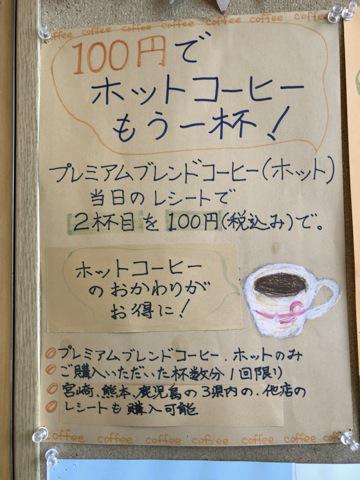 coffee coffee coffee coffee coffee coffee coffee
100円で
ホットコーヒー
もう一杯!
プレミアムブレンドコーヒー(ホット)
当日のレシートで
2杯目を100円(税込み)で。
ホットコーヒー
のおかわりが
お得に!
プレミアムブレンドコーヒー.ホットのみ
ご購入いただいた杯数分1回限り
宮崎.熊本.鹿児島の3県内の.他店の
レシートも購入可能
coffee coffee coffee coffee coffee coffee coffee